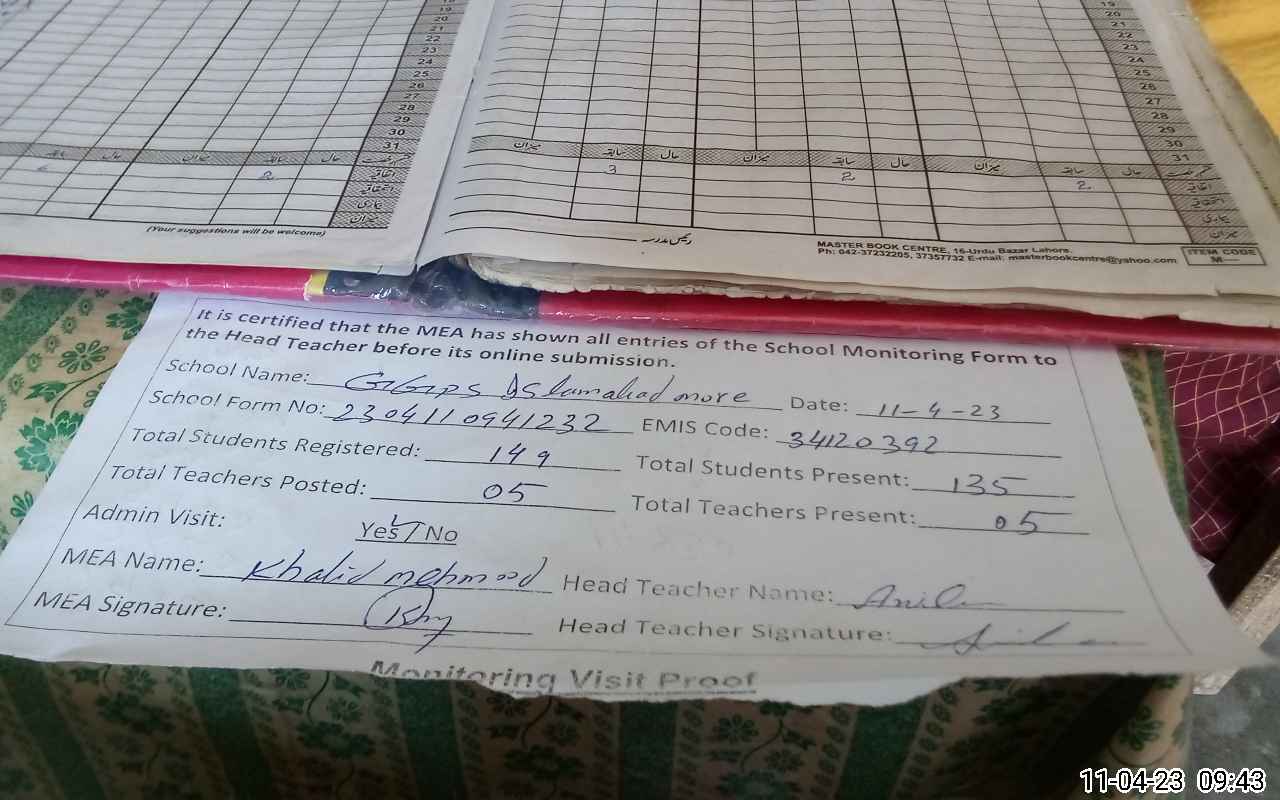 19
20
21
22
23
24
25
26
27
28
29
30
31
میزان سابقہ حال میزان سابقہ حال
اتفاقیہ
استحقاقیہ
بیماری
میزان
2
(Your suggestions will be welcome)
19
20
21
22
23
24
25
26
27
28
29
30
31
میزان سابقہ حال میزان سابقہ حال میزان سابقہ حال
3 2 2 اتفاقیہ
استحقاقیہ
بیماری
میزان
رئیس مدرسہ
MASTER BOOK CENTRE, 16-Urdu Bazar Lahore.
Ph: 042-37232205, 37357732 E-mail: masterbookcentre@yahoo.com
ITEM CODE
M—
It is certified that the MEA has shown all entries of the School Monitoring Form to
the Head Teacher before its online submission.
School Name: GGPS Islamabad more Date: 11-4-23
School Form No: 2304110941232 EMIS Code: 34120392
Total Students Registered: 149 Total Students Present: 135
Total Teachers Posted: 05 Total Teachers Present: 05
Admin Visit: Yes/No
MEA Name: Khalid mehmood Head Teacher Name:
MEA Signature: Head Teacher Signature:
Monitoring Visit Proof
11-04-23 09:43